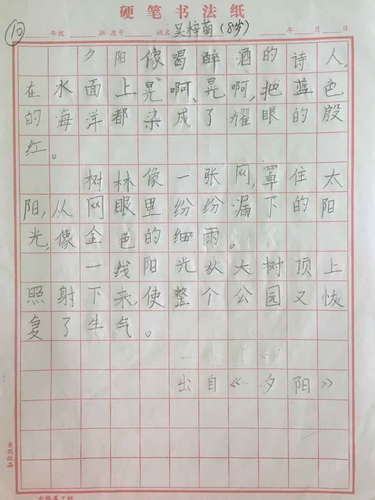 硬笔书法纸
⑩ 年级 班 座号 姓名 吴梓萌(8岁) 年 月 日
夕阳像喝醉酒的诗人,
在水面上晃啊,晃啊,把蓝色
的海洋都染成了耀眼的殷
红。
树林像一张网,罩住太
阳,从网眼里纷纷漏下的阳
光,像金色的细雨。
一线阳光从大树顶上
照射下来,使整个公园又恢
复了生气。
出自《夕阳》